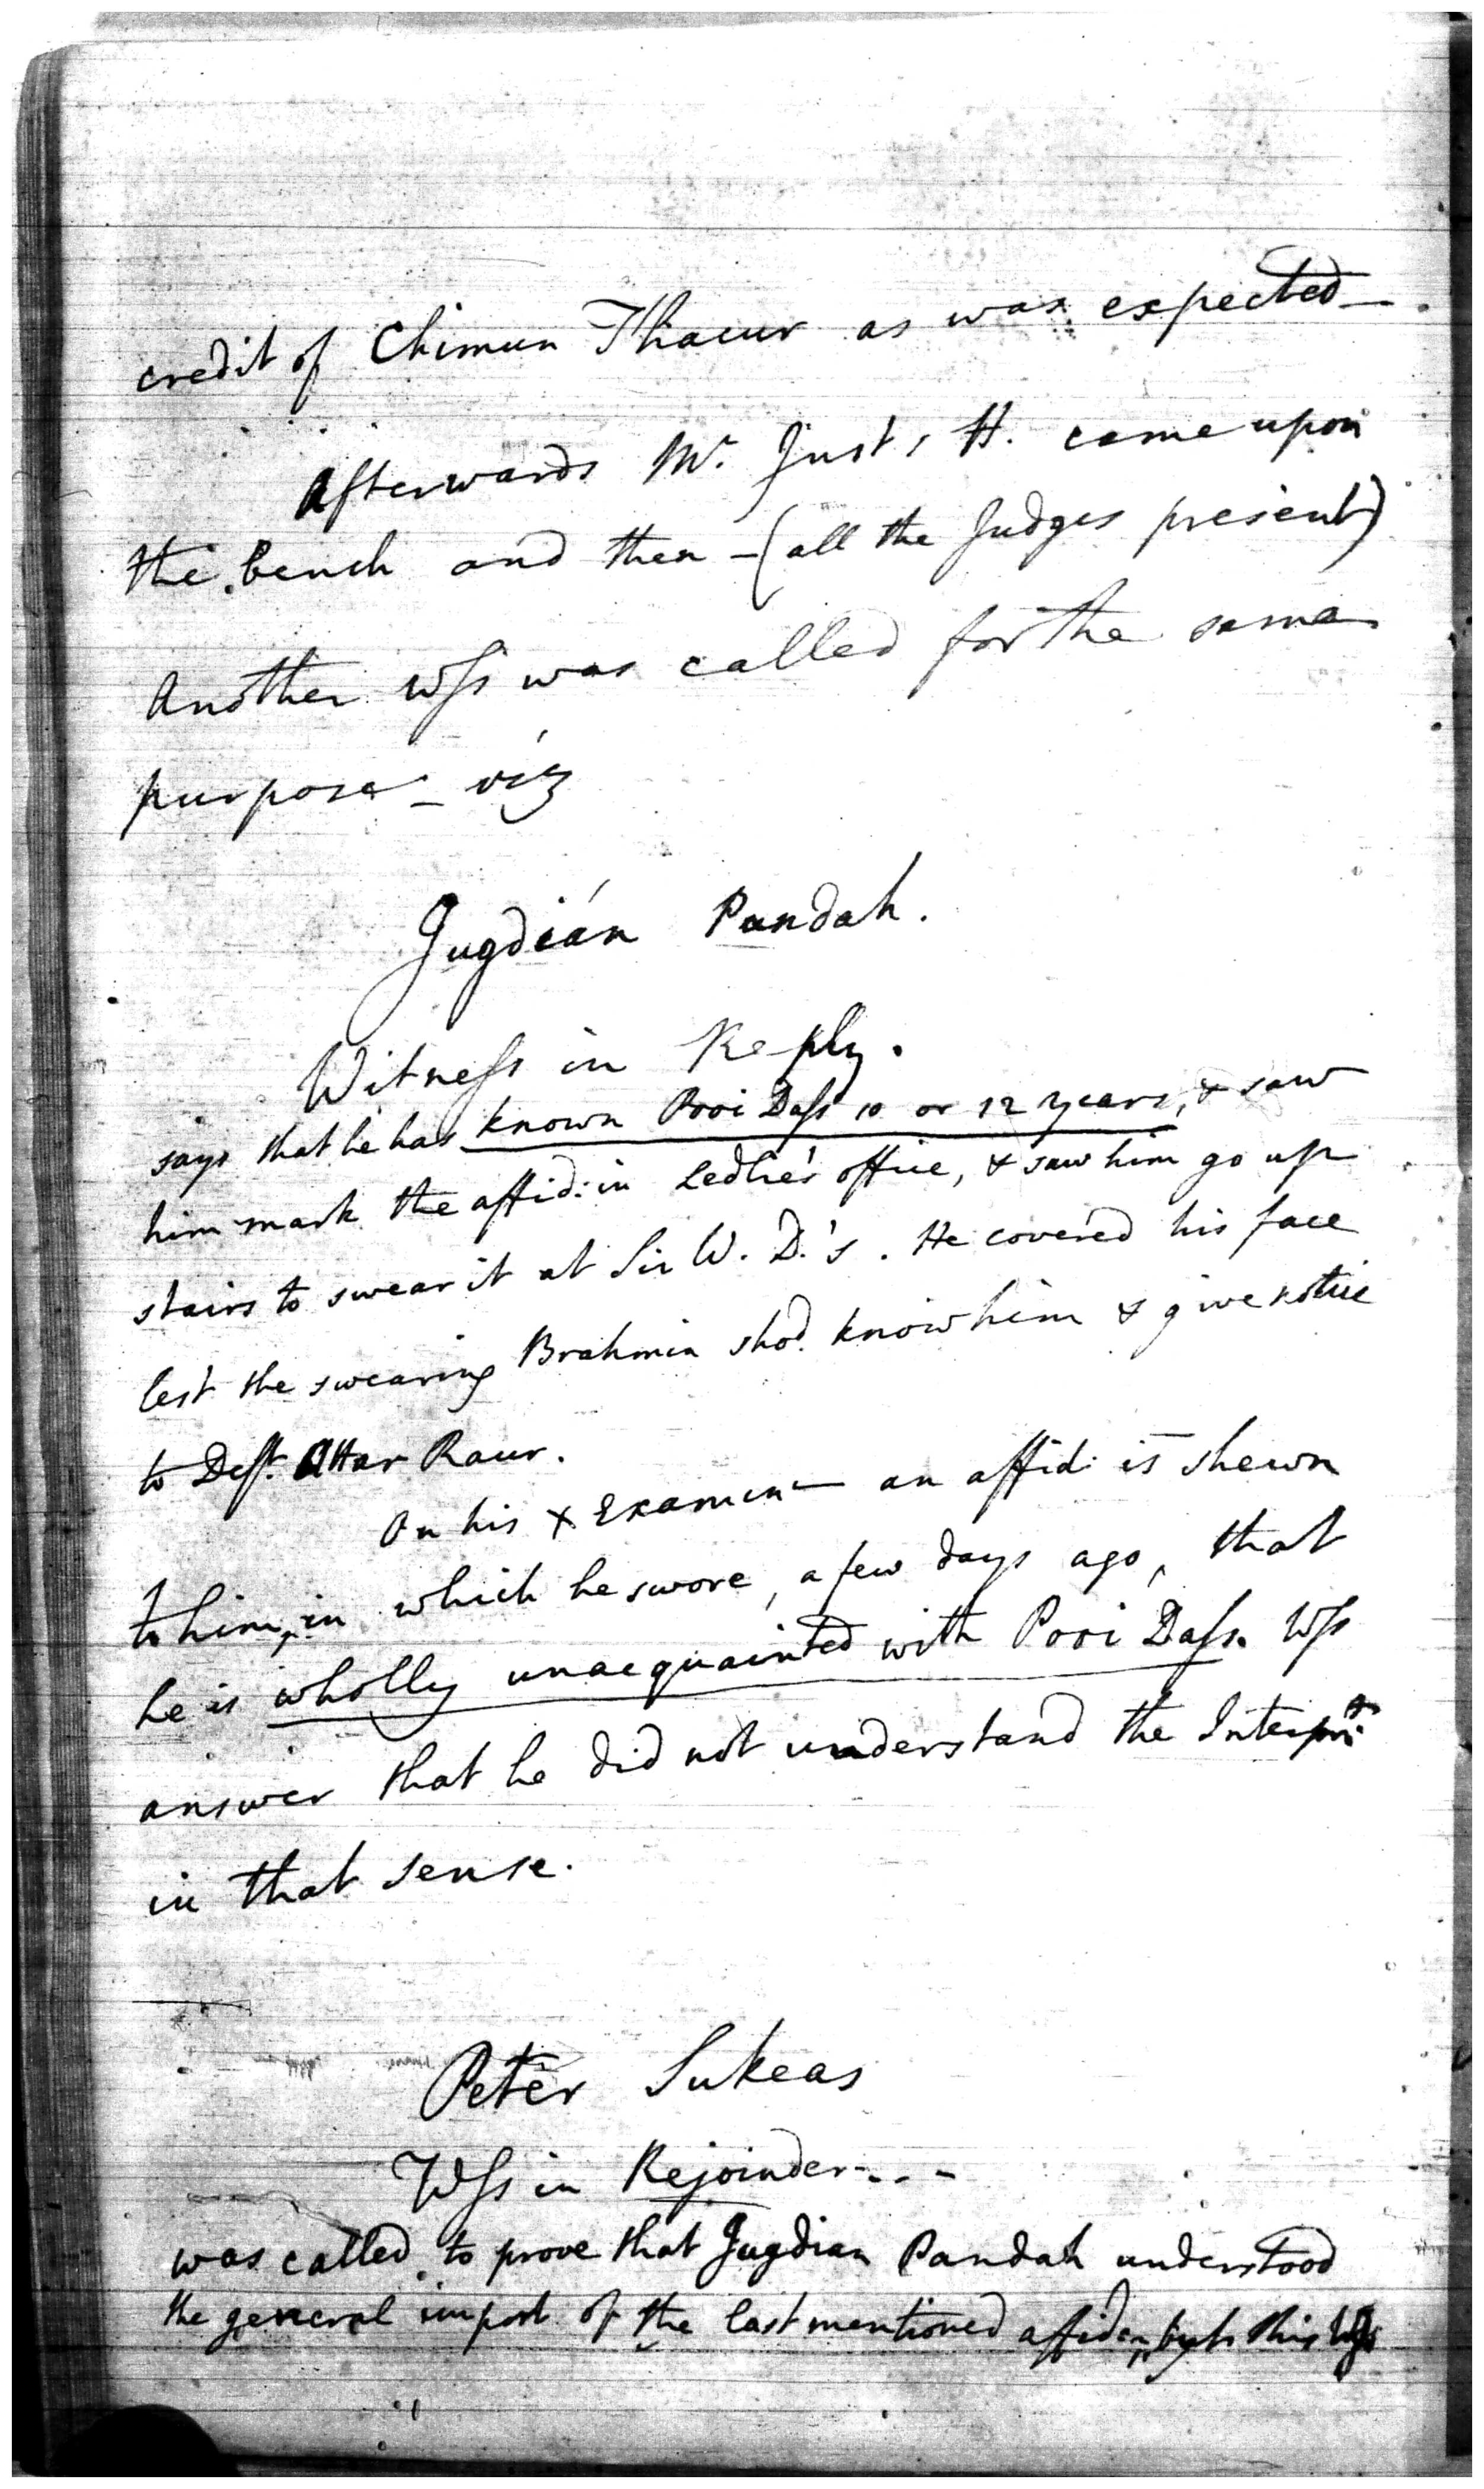 credit of Chimun Thacur as was expected—
Afterwards Mr. Just. H. came upon
the bench and then — (all the Judges present)
Another Wſs was called for the same
purpose — viz
Jugdián Pandah.
Witneſs in Reply.
says that he has known Pooi Daſs 10 or 12 years, & saw
him mark the affid: in Ledlie's office, & saw him go up
stairs to swear it at Sir W. D.'s. He covered his face
lest the swearing Brahmin shod. know him & give notice
to Deft. Attar Raur.
On his X Examinn— an affid: is shewn
to him, in which he swore, a few days ago, that
he is wholly unacquainted with Pooi Daſs. Wſs
answer that he did not understand the Interpr.
in that sense.
Peter Sukeas
Wſs in Rejoinder - - -
was called to prove that Jugdian Pandah understood
the general import of the last mentioned affid this Wſs